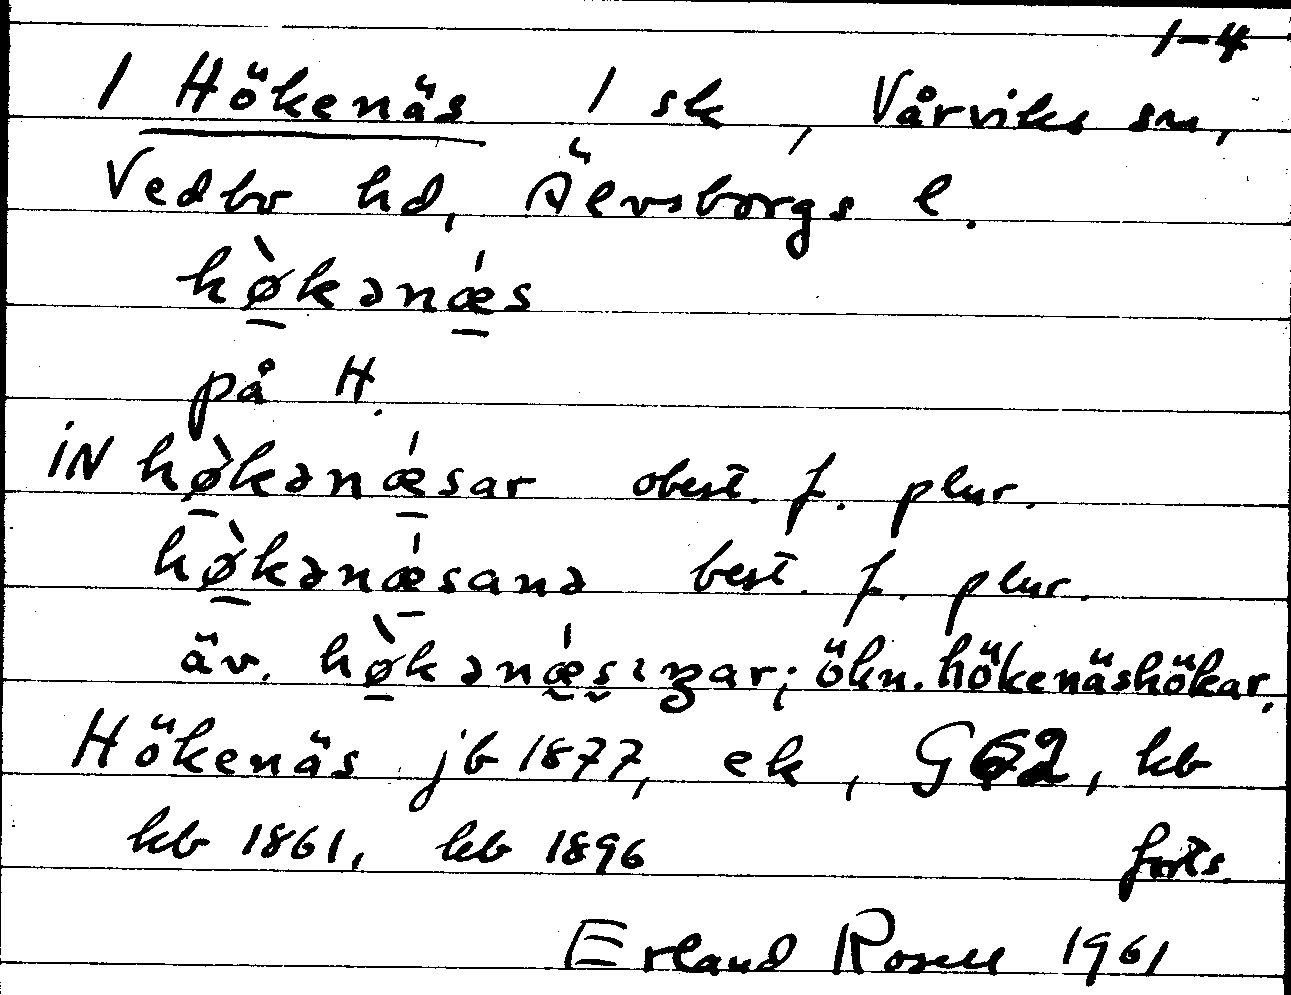 1-4
1 Hökenäs 1 sk, Vårviks sn,
Vedbo hd, Älvsborgs l.
hø̀kənǽs
på H.
iN hø̀kənǽsar obest. f. plur.
hø̀kənǽsanə best. f. plur.
äv. hø̀kənǽsıŋar; ökn. hökenäshökar.
Hökenäs jb 1877, ek, G62, kb
kb 1861, kb 1896 forts.
Erland Rosell 1961